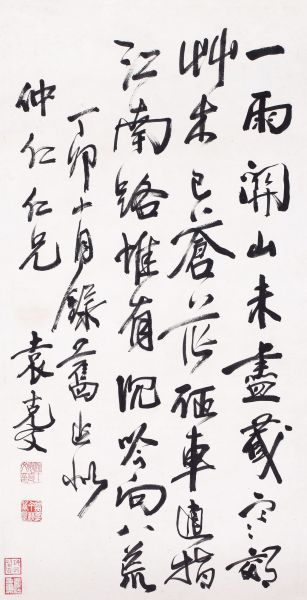 一雨關山未盡藏寒郊
艸木已蒼茫征車直指
江南路惟有沉吟向八荒
丁卯十月錄舊作似
仲仁仁兄
袁克文